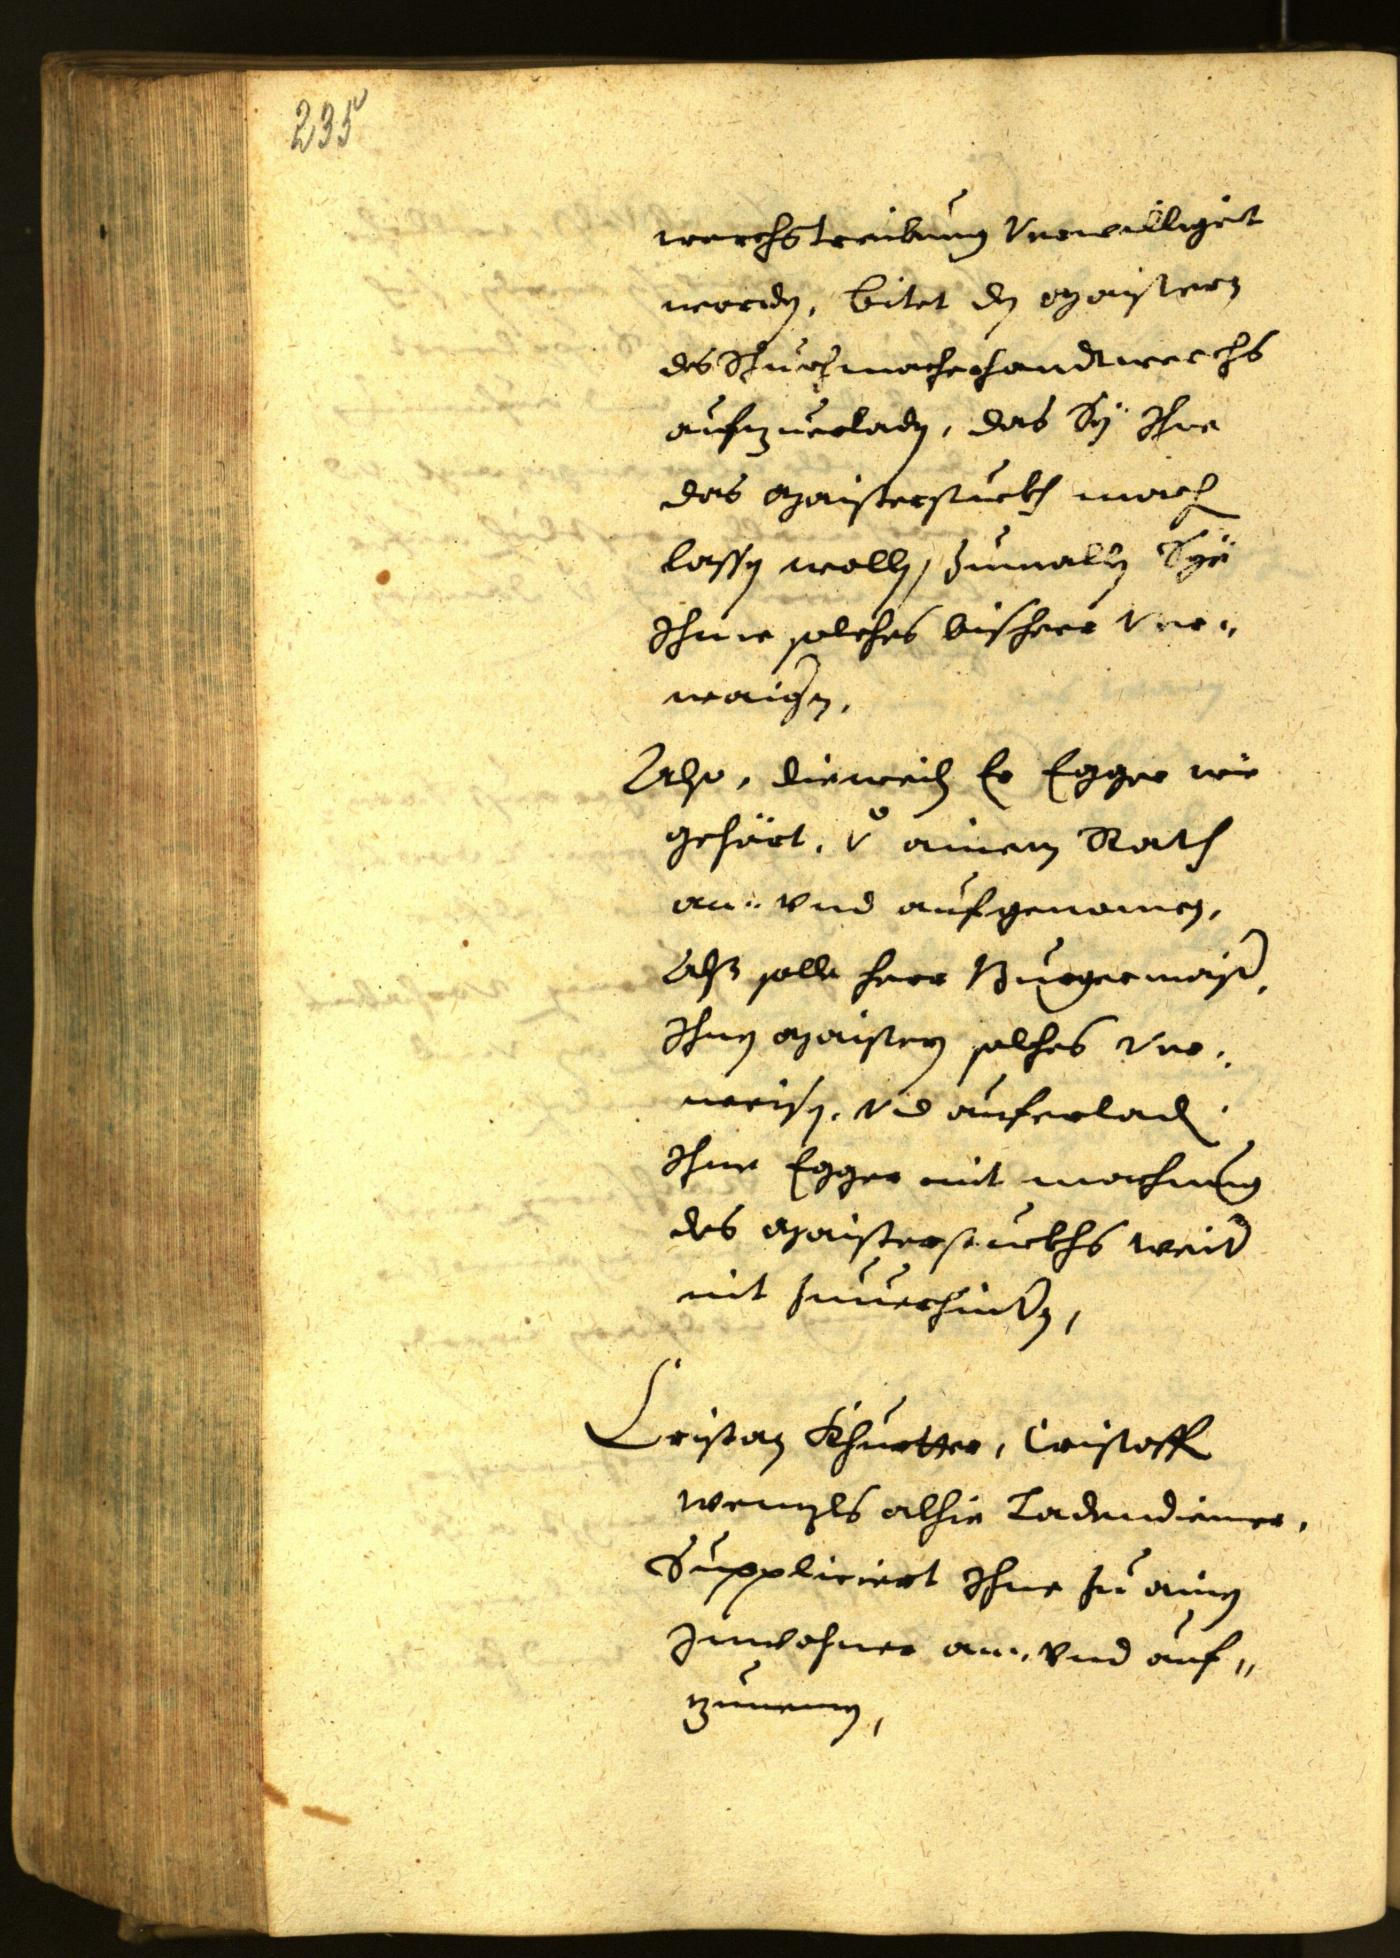 235
werchs treibung Verwilliget
worden, bitet den Maistern
des Schuechmacherhandtwerchs
aufzuerladen, das Sy Ihne
das Maisterstuckh machen
lassen wollen, zumallen Sye
Ihme solches bisheer Ver„
waigern.
Also, dieweilen Er Egger wie
gehört, von ainem Rath
an„ vnd aufgenomen,
Alß solle herr Burgermaister,
Ihnen Maistern solches Ver„
weisen, vnd auferladen
Ihne Egger mit machung
des Maisterstuckhs weiter
nit zuuerhindern,
Cristan Khurtter, Cristoff
Wenzls alhie Ladendiener,
Suppliciert Ihne zu ainen
Inwohner an„ vnd auf„
zunemen,